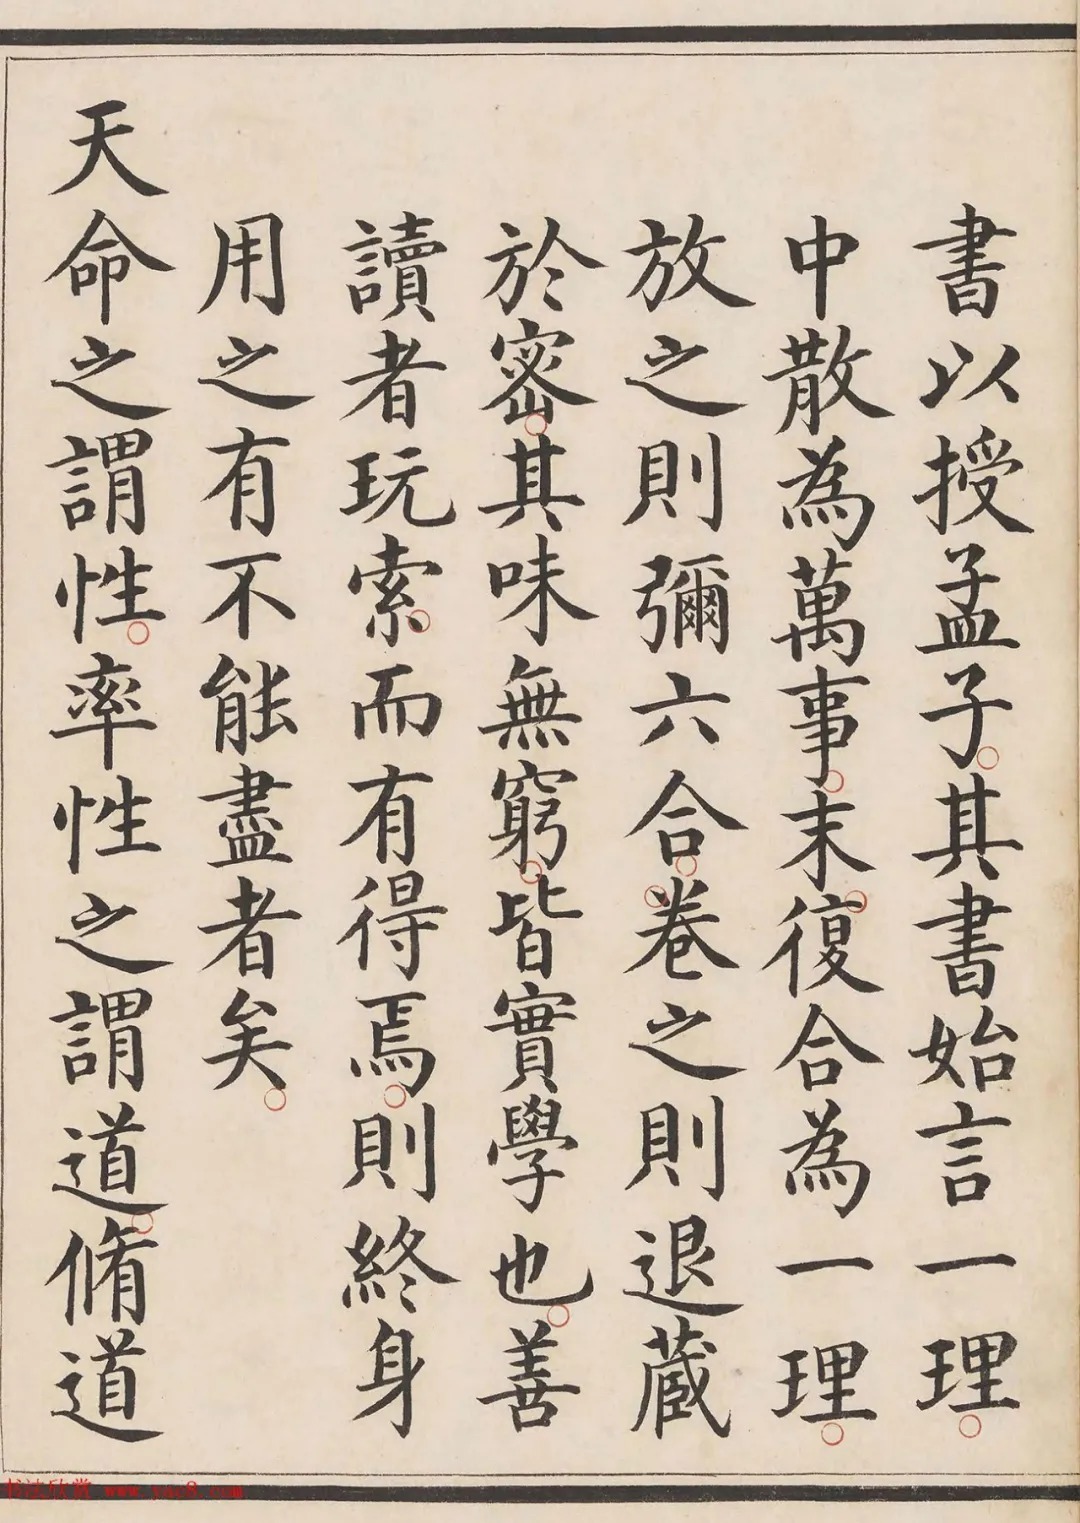 書以授孟子其書始言一理
中散為萬事末復合為一理
放之則彌六合卷之則退藏
於密其味無窮皆實學也善
讀者玩索而有得焉則終身
用之有不能盡者矣
天命之謂性率性之謂道脩道
书法欣赏 www.yac8.com